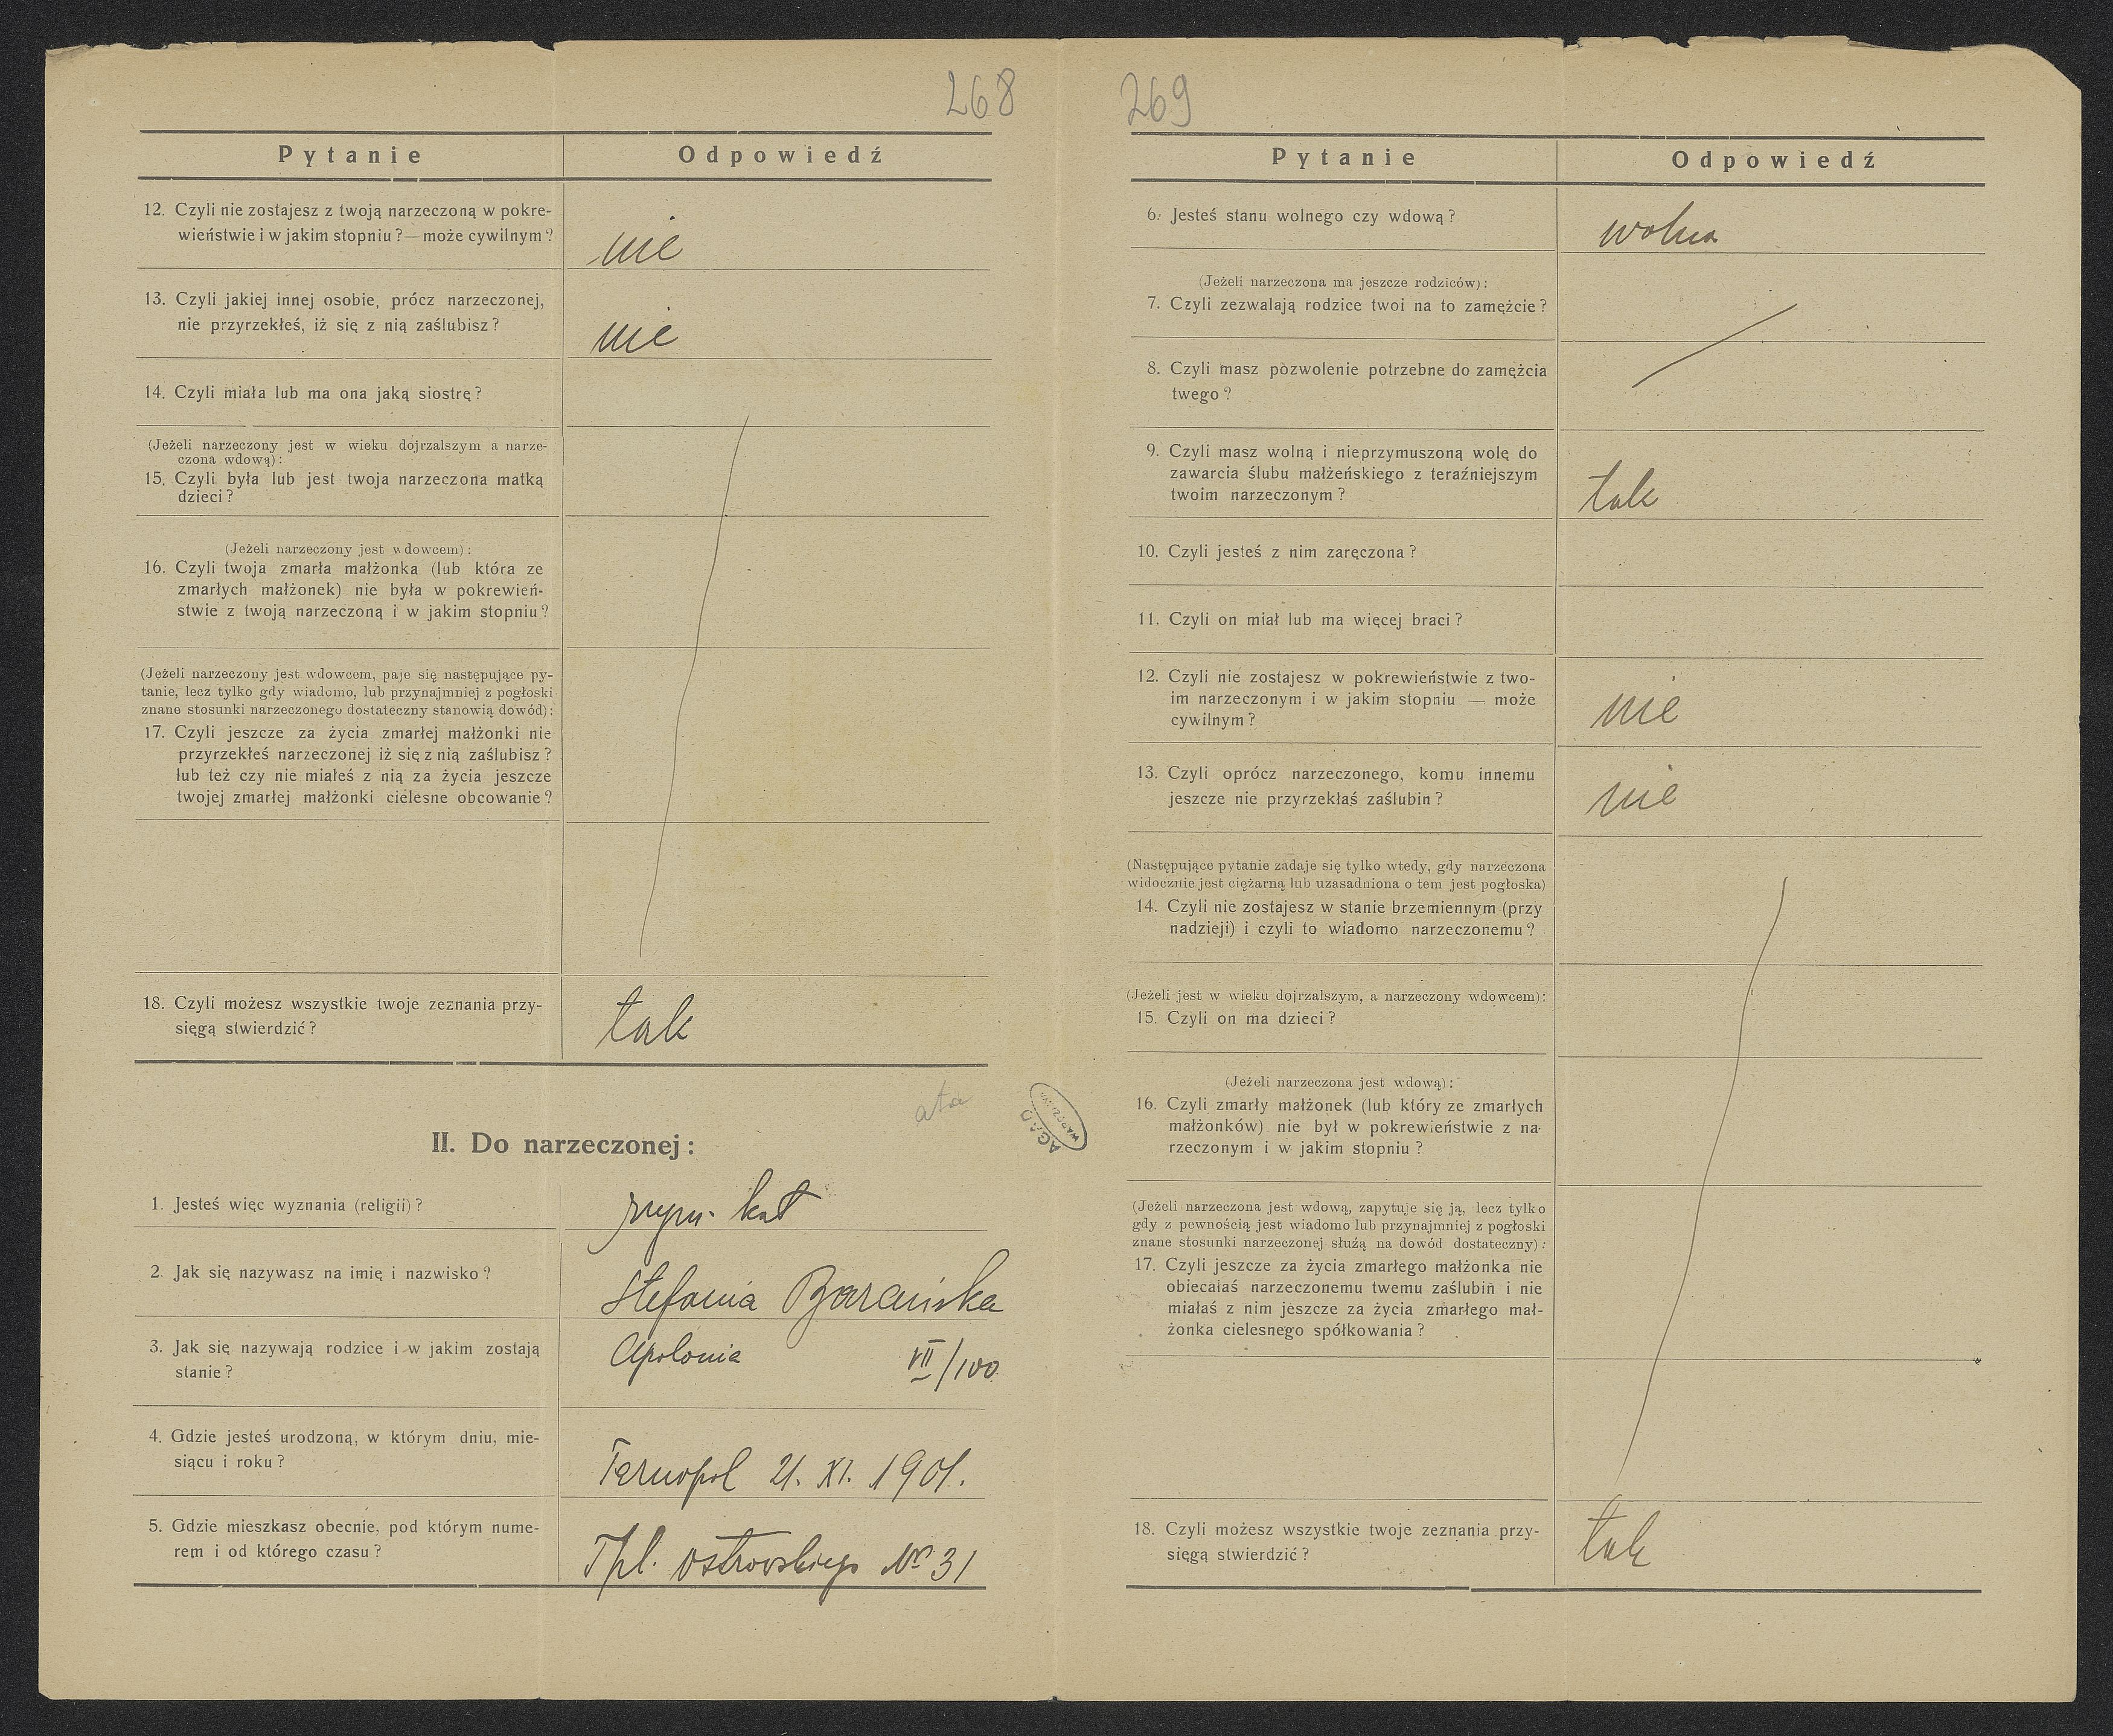 268
Pytanie
Odpowiedź
12. Czyli nie zostajesz z twoją narzeczoną w pokre-
wieństwie i w jakim stopniu?—może cywilnym?
nie
13. Czyli jakiej innej osobie, prócz narzeczonej,
nie przyrzekłeś, iż się z nią zaślubisz?
nie
14. Czyli miała lub ma ona jaką siostrę?
(Jeżeli narzeczony jest w wieku dojrzalszym a narze-
czona wdową):
15. Czyli była lub jest twoja narzeczona matką
dzieci?
(Jeżeli narzeczony jest wdowcem):
16. Czyli twoja zmarła małżonka (lub która ze
zmarłych małżonek) nie była w pokrewień-
stwie z twoją narzeczoną i w jakim stopniu?
(Jeżeli narzeczony jest wdowcem, paje się następujące py-
tanie, lecz tylko gdy wiadomo, lub przynajmniej z pogłoski
znane stosunki narzeczonego dostateczny stanowią dowód):
17. Czyli jeszcze za życia zmarłej małżonki nie
przyrzekłeś narzeczonej iż się z nią zaślubisz?
lub też czy nie miałeś z nią za życia jeszcze
twojej zmarłej małżonki cielesne obcowanie?
18. Czyli możesz wszystkie twoje zeznania przy-
sięgą stwierdzić?
tak
ata
II. Do narzeczonej:
1. Jesteś więc wyznania (religii)?
rzym. kat
2. Jak się nazywasz na imię i nazwisko?
Stefania Barańska
3. Jak się nazywają rodzice i w jakim zostają
stanie?
Apolonia VII/100
4. Gdzie jesteś urodzoną, w którym dniu, mie-
siącu i roku?
Tarnopol 21. XI. 1901.
5. Gdzie mieszkasz obecnie, pod którym nume-
rem i od którego czasu?
Tpl. Ostrowskiego No 31
AGAD
WARSZAWA
269
Pytanie
Odpowiedź
6. Jesteś stanu wolnego czy wdową?
wolna
(Jeżeli narzeczona ma jeszcze rodziców):
7. Czyli zezwalają rodzice twoi na to zamężcie?
8. Czyli masz pozwolenie potrzebne do zamężcia
twego?
9. Czyli masz wolną i nieprzymuszoną wolę do
zawarcia ślubu małżeńskiego z teraźniejszym
twoim narzeczonym?
tak
10. Czyli jesteś z nim zaręczona?
11. Czyli on miał lub ma więcej braci?
12. Czyli nie zostajesz w pokrewieństwie z two-
im narzeczonym i w jakim stopniu — może
cywilnym?
nie
13. Czyli oprócz narzeczonego, komu innemu
jeszcze nie przyrzekłaś zaślubin?
nie
(Następujące pytanie zadaje się tylko wtedy, gdy narzeczona
widocznie jest ciężarną lub uzasadniona o tem jest pogłoska)
14. Czyli nie zostajesz w stanie brzemiennym (przy
nadzieji) i czyli to wiadomo narzeczonemu?
(Jeżeli jest w wieku dojrzalszym, a narzeczony wdowcem):
15. Czyli on ma dzieci?
(Jeżeli narzeczona jest wdową):
16. Czyli zmarły małżonek (lub który ze zmarłych
małżonków) nie był w pokrewieństwie z na-
rzeczonym i w jakim stopniu?
(Jeżeli narzeczona jest wdową, zapytuje się ją, lecz tylko
gdy z pewnością jest wiadomo lub przynajmniej z pogłoski
znane stosunki narzeczonej służą na dowód dostateczny):
17. Czyli jeszcze za życia zmarłego małżonka nie
obiecałaś narzeczonemu twemu zaślubin i nie
miałaś z nim jeszcze za życia zmarłego mał-
żonka cielesnego spółkowania?
18. Czyli możesz wszystkie twoje zeznania przy-
sięgą stwierdzić?
tak